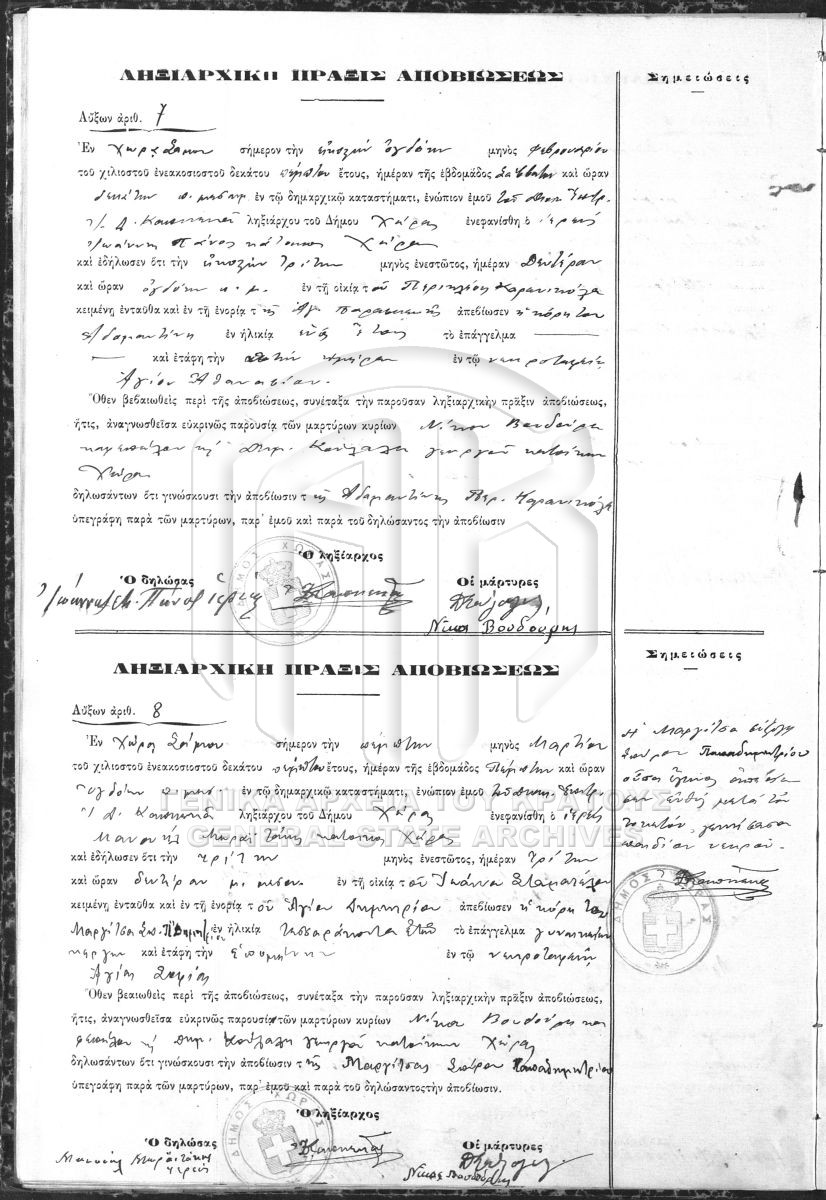 ΛΗΞΙΑΡΧΙΚΗ ΠΡΑΞΙΣ ΑΠΟΒΙΩΣΕΩΣ
Σημειώσεις
Αὔξων ἀριθ. 7
Ἐν Χώρᾳ Σάμου σήμερον τὴν εἰκοστὴν ὀγδόην μηνὸς Φεβρουαρίου
τοῦ χιλιοστοῦ ἐνεακοσιοστοῦ δεκάτου πέμπτου ἔτους, ἡμέραν τῆς ἑβδομάδος Σάββατον καὶ ὥραν
δεκάτην π. μεσημ. ἐν τῷ δημαρχικῷ καταστήματι, ἐνώπιον ἐμοῦ τοῦ
ληξιάρχου τοῦ Δήμου Χώρας ἐνεφανίσθη ὁ ἱερεὺς
Ἰωάννης Πάνος κάτοικος Χώρας
καὶ ἐδήλωσεν ὅτι τὴν εἰκοστὴν τρίτην μηνὸς ἐνεστῶτος, ἡμέραν Δευτέραν
καὶ ὥραν ὀγδόην π. μ. ἐν τῇ οἰκίᾳ τοῦ Περικλέους Καρανικόλα
κειμένῃ ἐνταῦθα καὶ ἐν τῇ ἐνορίᾳ τῆς Ἁγ. Παρασκευῆς ἀπεβίωσεν ἡ κόρη του
Ἀδαμαντίνη ἐν ἡλικίᾳ ἑνὸς ἔτους τὸ ἐπάγγελμα
καὶ ἐτάφη τὴν αὐτὴν ἡμέραν ἐν τῷ νεκροταφείῳ
Ἁγίου Ἀθανασίου.
Ὅθεν βεβαιωθεὶς περὶ τῆς ἀποβιώσεως, συνέταξα τὴν παροῦσαν ληξιαρχικὴν πρᾶξιν ἀποβιώσεως,
ἥτις, ἀναγνωσθεῖσα εὐκρινῶς παρουσίᾳ τῶν μαρτύρων κυρίων Νίκου Βουδούρη
γεωργοῦ κατοίκων
Χώρας
δηλωσάντων ὅτι γινώσκουσι τὴν ἀποβίωσιν τῆς Ἀδαμαντίνης Περ. Καρανικόλα
ὑπεγράφη παρὰ τῶν μαρτύρων, παρ' ἐμοῦ καὶ παρὰ τοῦ δηλώσαντος τὴν ἀποβίωσιν
Ὁ ληξίαρχος
Ὁ δηλώσας
Οἱ μάρτυρες
Πάνος ἱερεύς
Νίκος Βουδούρης
ΔΗΜΟΣ ΧΩΡΑΣ
ΛΗΞΙΑΡΧΙΚΗ ΠΡΑΞΙΣ ΑΠΟΒΙΩΣΕΩΣ
Σημειώσεις
Αὔξων ἀριθ. 8
Ἐν Χώρᾳ Σάμου σήμερον τὴν πέμπτην μηνὸς Μαρτίου
τοῦ χιλιοστοῦ ἐνεακοσιοστοῦ δεκάτου πέμπτου ἔτους, ἡμέραν τῆς ἑβδομάδος Πέμπτην καὶ ὥραν
ὀγδόην π. μεσ. ἐν τῷ δημαρχικῷ καταστήματι, ἐνώπιον ἐμοῦ τοῦ
ληξιάρχου τοῦ Δήμου Χώρας ἐνεφανίσθη ὁ ἱερεὺς
Μανουὴλ κάτοικος Χώρας
καὶ ἐδήλωσεν ὅτι τὴν τρίτην μηνὸς ἐνεστῶτος, ἡμέραν Τρίτην
καὶ ὥραν δευτέραν μ. μεσον. ἐν τῇ οἰκίᾳ τοῦ Ἰωάννου Σταματέλου
κειμένῃ ἐνταῦθα καὶ ἐν τῇ ἐνορίᾳ τοῦ Ἁγίου Δημητρίου ἀπεβίωσεν ἡ κόρη του
Μαργίτσα Σπ. Π. Δημητρίου ἐν ἡλικίᾳ τεσσαράκοντα ἐτῶν τὸ ἐπάγγελμα
καὶ ἐτάφη τὴν ἑπομένην ἐν τῷ νεκροταφείῳ
Ἁγίας Σοφίας
Ὅθεν βεαιωθεὶς περὶ τῆς ἀποβιώσεως, συνέταξα τὴν παροῦσαν ληξιαρχικὴν πρᾶξιν ἀποβιώσεως,
ἥτις, ἀναγνωσθεῖσα εὐκρινῶς παρουσίᾳ τῶν μαρτύρων κυρίων Νίκου Βουδούρη
γεωργοῦ κατοίκων Χώρας
δηλωσάντων ὅτι γινώσκουσι τὴν ἀποβίωσιν τῆς Μαργίτσας Σπύρου Παπαδημητρίου
ὑπεγράφη παρὰ τῶν μαρτύρων, παρ' ἐμοῦ καὶ παρὰ τοῦ δηλώσαντος τὴν ἀποβίωσιν.
Ὁ ληξίαρχος
Ὁ δηλώσας
Οἱ μάρτυρες
Μανουὴλ
ἱερεύς
Νίκος Βουδούρης
ΔΗΜΟΣ ΧΩΡΑΣ
Ἡ Μαργίτσα σύζυγος
Σπύρου Παπαδημητρίου
οὖσα ἔγκυος
εὐθὺς μετὰ τὸν
τοκετόν, γεννήσασα
παιδίον νεκρόν.
ΔΗΜΟΣ ΧΩΡΑΣ
ΓΕΝΙΚΑ ΑΡΧΕΙΑ ΤΟΥ ΚΡΑΤΟΥΣ
GENERAL STATE ARCHIVES